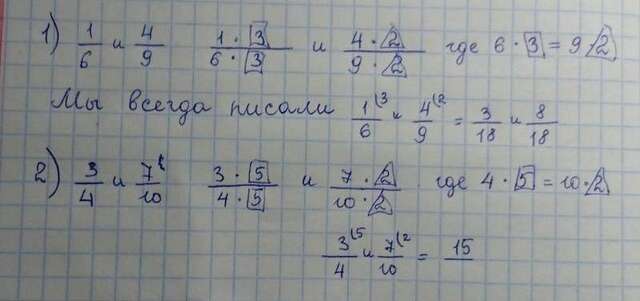 1) 1/6 и 4/9 1·3/6·3 и 4·2/9·2 где 6·3=9·2
Мы всегда писали 1/6 (3 и 4/9 (2 = 3/18 и 8/18
2) 3/4 и 7/10 3·5/4·5 и 7·2/10·2 где 4·5=10·2
3/4 (5 и 7/10 (2 = 15/